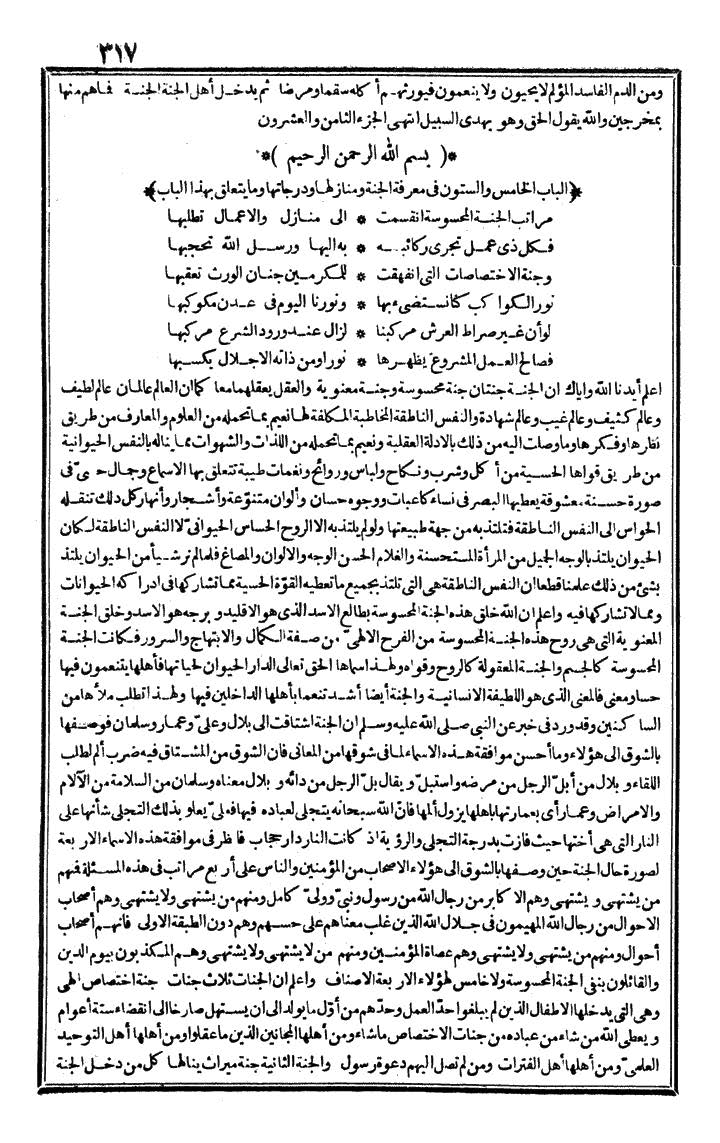 ٣١٧
ومن الدم الفاسد المؤلم لا يحيون ولا ينعمون فيورثهم أكله سقما ومرضا ثم يدخل أهل الجنة الجنة فماهم منها
بمخرجين والله يقول الحق وهو يهدى السبيل انتهى الجزء الثامن والعشرون
*( بسم الله الرحمن الرحيم )*
﴿الباب الخامس والستون فى معرفة الجنة ومنازلها ودرجاتها وما يتعلق بهذا الباب﴾
مراتب الجنة المحسوسة انقسمت * الى منازل والاعمال تطلبها
فكل ذى عمل تجرى ركائبه * به اليها ورسل الله تحجبها
وجنة الاختصاصات التى انفهقت * للمكرمين جنان الورث تعقبها
نور الكواكب كنا نستضىء بها * ونورنا اليوم فى عدن مكوكبها
لو أن غير صراط العرش مركبنا * لزال عند ورود الشرع مركبها
فصالح العمل المشروع يظهرها * نورا ومن ذاته الاجلال يكسبها
اعلم أيدنا الله واياك ان الجنة جنتان جنة محسوسة وجنة معنوية والعقل يعقلهما معا كما ان العالم عالمان عالم لطيف
وعالم كثيف وعالم غيب وعالم شهادة والنفس الناطقة المخاطبة المكلفة لها نعيم بما تحمله من العلوم والمعارف من طريق
نظرها وفكرها وما وصلت اليه من ذلك بالادلة العقلية ونعيم بما تحمله من اللذات والشهوات مما يناله بالنفس الحيوانية
من طريق قواها الحسية من أكل وشرب ونكاح ولباس وروائح ونغمات طيبة تتعلق بها الاسماع وجمال حسىّ فى
صورة حسنة معشوقة يعطيها البصر فى نساء كاعبات ووجوه حسان وألوان متنوّعة وأشجار وأنهار كل ذلك تنقله
الحواس الى النفس الناطقة فتلتذ به من جهة طبيعتها ولو لم يلتذ به الا الروح الحساس الحيوانىّ لا النفس الناطقة لكان
الحيوان يلتذ بالوجه الجميل من المرأة المستحسنة والغلام الحسن الوجه والالوان والمصاغ فلما لم نر شيأ من الحيوان يلتذ
بشئ من ذلك علمنا قطعا ان النفس الناطقة هى التى تلتذ بجميع ما تعطيه القوّة الحسية مما تشاركها فى ادراكه الحيوانات
ومما لا تشاركها فيه واعلم ان الله خلق هذه الجنة المحسوسة بطالع الاسد الذى هو الاقليد وبرجه هو الاسد وخلق الجنة
المعنوية التى هى روح هذه الجنة المحسوسة من الفرح الالهىّ من صفة الكمال والابتهاج والسرور فكانت الجنة
المحسوسة كالجسم والجنة المعقولة كالروح وقواه ولهذا سماها الحق تعالى الدار الحيوان لحياتها فأهلها يتنعمون فيها
حسا ومعنى فالمعنى الذى هو اللطيفة الانسانية والجنة أيضا أشد تنعما بأهلها الداخلين فيها ولهذا تطلب ملأها من
الساكنين وقد ورد فى خبر عن النبى صلى الله عليه وسلم ان الجنة اشتاقت الى بلال وعلىّ وعمار وسلمان فوصفها
بالشوق الى هؤلاء وما أحسن موافقة هذه الاسماء لما فى شوقها من المعانى فان الشوق من المشتاق فيه ضرب ألم لطلب
اللقاء وبلال من أبلّ الرجل من مرضه واستبلّ ويقال بلّ الرجل من دائه وبلال معناه وسلمان من السلامة من الآلام
والامراض وعمار أى بعمارتها باهلها يزول ألمها فانّ الله سبحانه يتجلى لعباده فيها فعلىّ يعلو بذلك التجلى شأنها على
النار التى هى أختها حيث فازت بدرجة التجلى والرؤية اذ كانت النار دار حجاب فانظر فى موافقة هذه الاسماء الاربعة
لصورة حال الجنة حين وصفها بالشوق الى هؤلاء الاصحاب من المؤمنين والناس على أربع مراتب فى هذه المسئلة فمنهم
من يشتهى ويشتهى وهم الاكابر من رجال الله من رسول ونبىّ وولىّ كامل ومنهم من يشتهى ولا يشتهى وهم أصحاب
الاحوال من رجال الله المهيمون فى جلال الله الذين غلب معناهم على حسهم وهم دون الطبقة الاولى فانهم أصحاب
أحوال ومنهم من يشتهى ولا يشتهى وهم عصاة المؤمنين ومنهم من لا يشتهى ولا يشتهى وهم المكذبون بيوم الدين
والقائلون بنفى الجنة المحسوسة ولا خامس لهؤلاء الاربعة الاصناف واعلم ان الجنات ثلاث جنات جنة اختصاص الهى
وهى التى يدخلها الاطفال الذين لم يبلغوا حدّ العمل وحدّهم من أوّل ما يولد الى ان يستهل صارخا الى انقضاء ستة أعوام
ويعطى الله من شاء من عباده من جنات الاختصاص ما شاء ومن أهلها المجانين الذين ما عقلوا ومن أهلها أهل التوحيد
العلمىّ ومن أهلها أهل الفترات ومن لم تصل اليهم دعوة رسول والجنة الثانية جنة ميراث ينالها كل من دخل الجنة